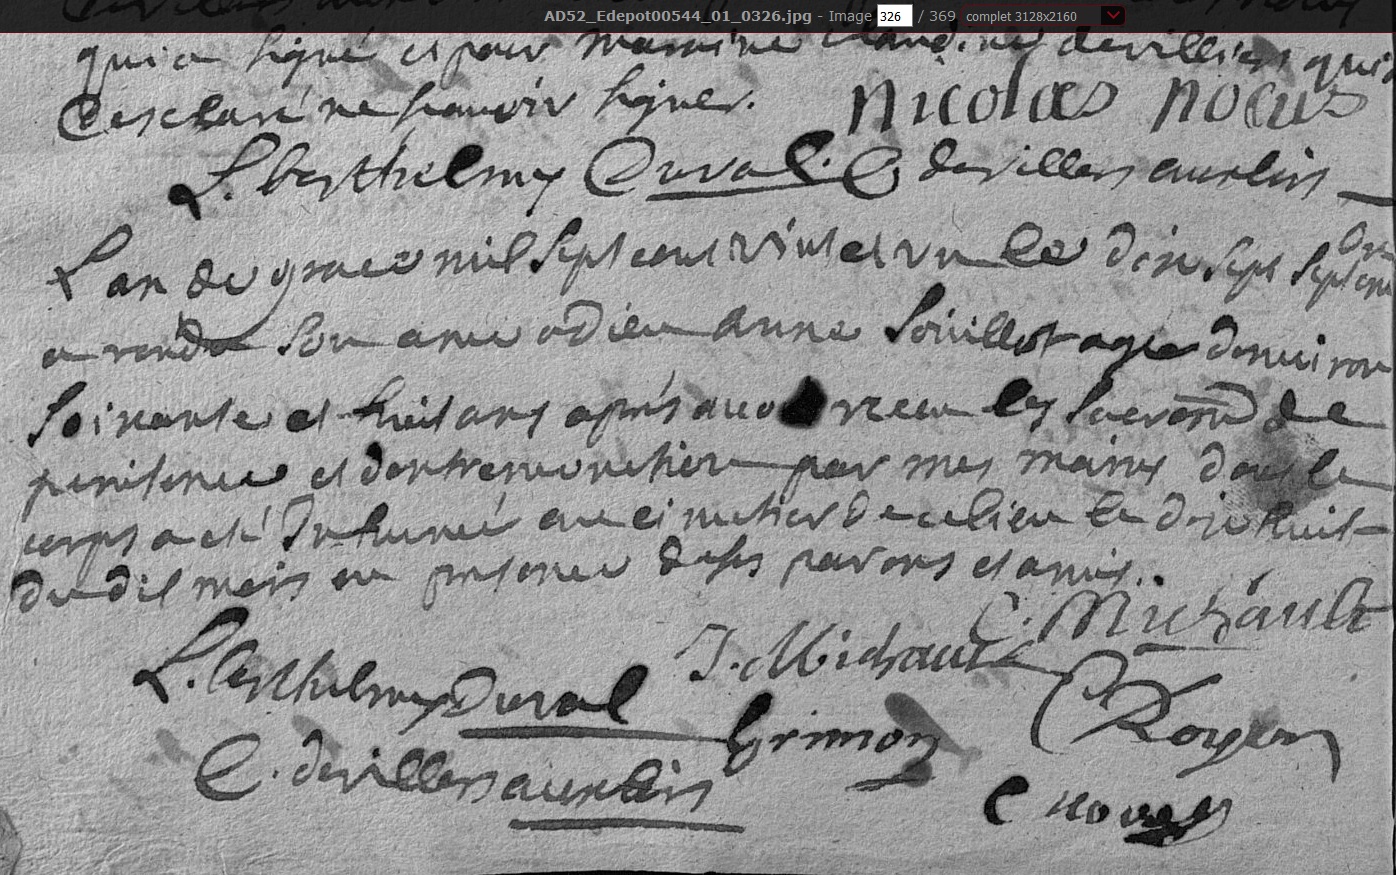 AD52_Edepot00544_01_0326.jpg - Image 326 / 369 complet 3128x2160
qui a signé et pour marine claudine devilliers qui
a esclaré ne scavoir signer. Nicolas nocus
L. berthelmy Duval. C devillers aurelirs
L an de grace mil sept cent vint et un le dix sept septem
a rendu son ame a dieu anne Souillot agee denviron
soixante et huit ans après avo receu les sacrem de
penitence et dextremeonction par mes mains dont le
corps a eté Inhumé au cimetier de ce lieu le dix huit
du dit mois en presence de ses parens et amis.
C. Michault
L. berthelmy Duval J. Michault
Grinon C Royer
C. devillers aurelirs
C